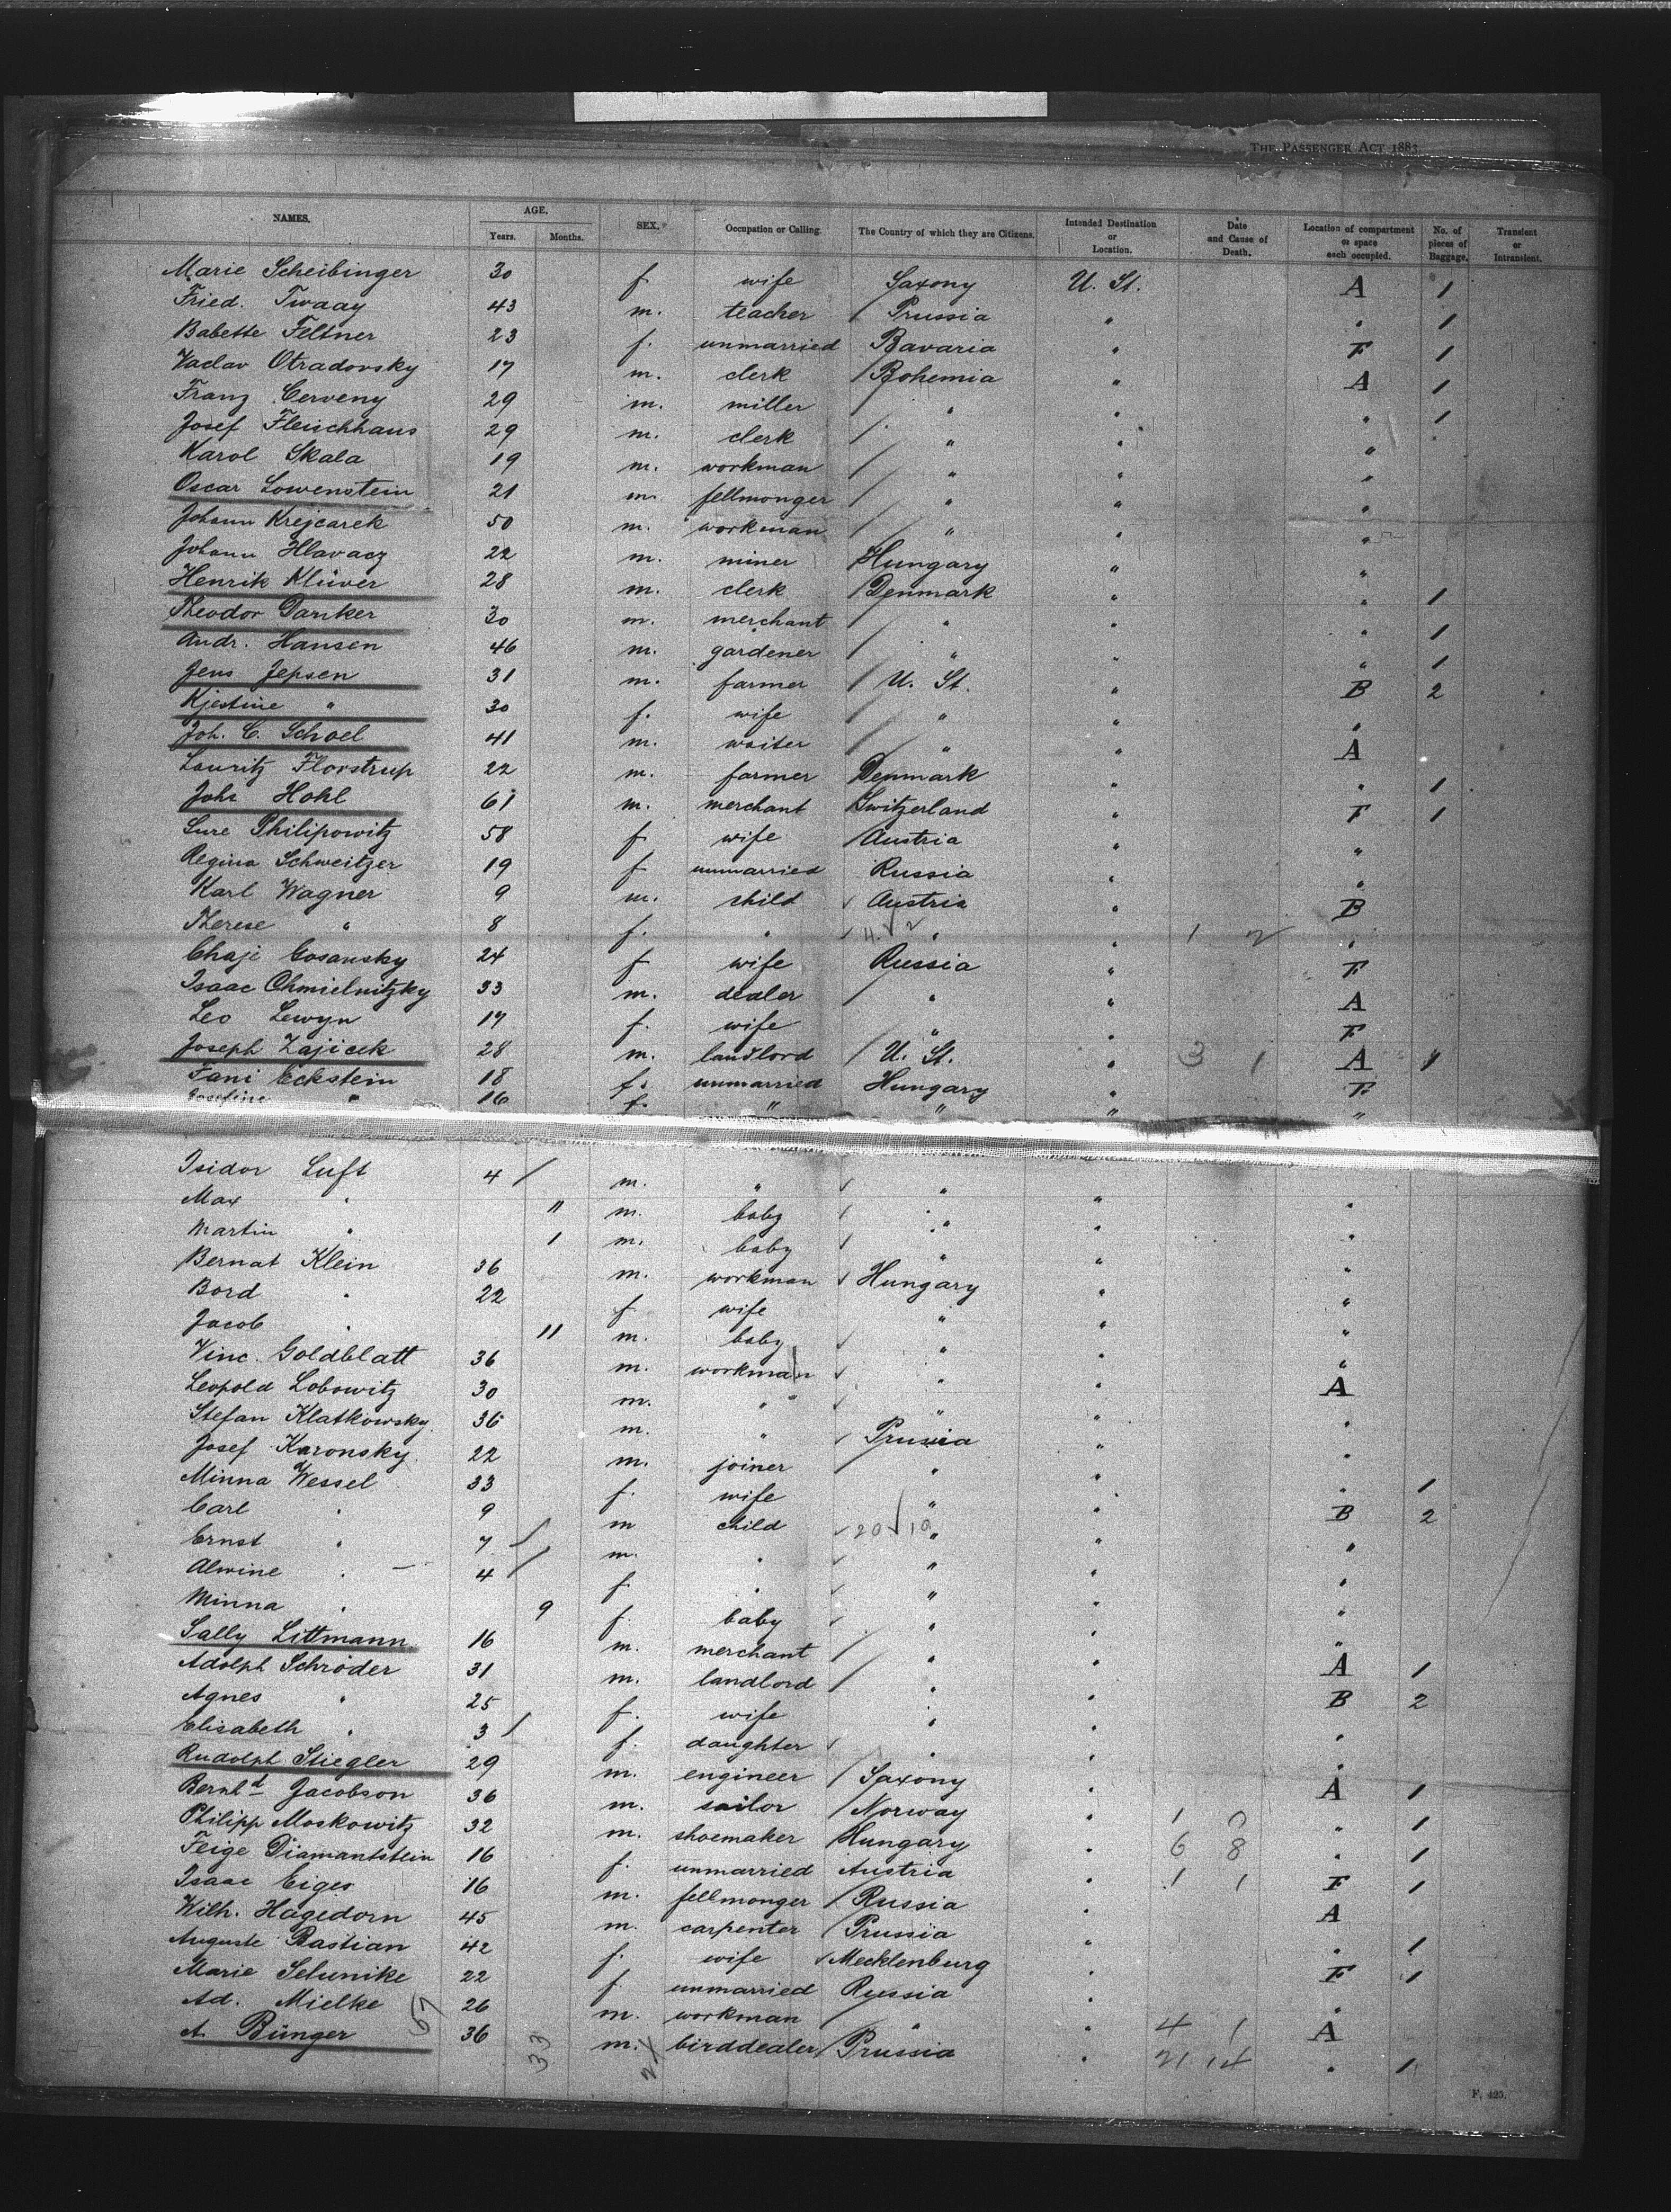 THE PASSENGER ACT 1883
NAMES. AGE. Years. Months. SEX. Occupation or Calling. The Country of which they are Citizens. Intended Destination or Location. Date and Cause of Death. Location of compartment or space each occupied. No. of pieces of Baggage. Transient or Intransient.
Marie Scheibinger 30 f wife Saxony U. St. A 1
Fried. Twaay 43 m. teacher / Prussia " " 1
Babette Feltner 23 f. unmarried Bavaria " F 1
Vaclav Otradovsky 17 m. clerk / Bohemia " A 1
Franz Cerveny 29 m. miller / " " " 1
Josef Fleischhaus 29 m. clerk / " " "
Karol Skala 19 m. workman / " " "
Oscar Lowenstein 21 m. fellmonger / " " "
Johann Krejcarek 50 m. workman / " " "
Johann Hlavacz 22 m. miner / Hungary " "
Henrik Klüver 28 m. clerk / Denmark " " 1
Theodor Danker 30 m. merchant / " " " 1
Andr. Hansen 46 m. gardener / " " " 1
Jens Jepsen 31 m. farmer / U. St. " B 2
Kjestine " 30 f. wife / " " "
Joh. C. Schoel 41 m. waiter / " " A
Lauritz Florstrup 22 m. farmer / Denmark " " 1
Johs Hohl 61 m. merchant / Switzerland " F 1
Sure Philipowitz 58 f wife / Austria " "
Regina Schweitzer 19 f unmarried Russia " "
Karl Wagner 9 m. child ✓ Austria " B
Therese " 8 f. " ✓ " " 1 2 "
Chaje Cosansky 24 f wife Russia " F
Isaac Chmielnitzky 33 m. dealer / " " A
Leo Lewyn 17 f. wife " " F
Joseph Zajicek 28 m. landlord / U. St. " 3 1 A 1
Fani Eckstein 18 f. unmarried Hungary " F
Josefine " 16 f. " " " "
Isidor Luft 4 / m. " ✓ " " "
Max " 11 m. baby ✓ " " "
Martin " 1 m. baby ✓ " " "
Bernat Klein 36 m. workman ✓ Hungary " "
Bord " 22 f wife " " "
Jacob " 11 m. baby ✓ " " "
Vinc. Goldblatt 36 m. workman ✓ " " A
Leopold Lobowitz 30 m. " ✓ " " "
Stefan Klatkowsky 36 m. " ✓ Prussia " "
Josef Karonsky 22 m. joiner / " " " 1
Minna Wessel 33 f. wife " " B 2
Carl " 9 m child ✓ 20 ✓ 10 " " "
Ernst " 7 / m. " ✓ " " "
Alwine " 4 / f. " ✓ " " "
Minna " 9 f. baby ✓ " " "
Sally Littmann 16 m. merchant / " " A 1
Adolph Schröder 31 m. landlord / " " B 2
Agnes " 25 f. wife " " "
Elisabeth " 3 / f. daughter ✓ " " "
Rudolph Stiegler 29 m. engineer / Saxony " A 1
Bernhd Jacobson 36 m. sailor / Norway " 1 0 " 1
Philipp Moskowitz 32 m. shoemaker / Hungary " 6 8 " 1
Feige Diamantstein 16 f. unmarried Austria " 1 1 F 1
Isaac Eiges 16 m. fellmonger / Russia " A
Wilh. Hagedorn 45 m. carpenter / Prussia " " 1
Auguste Bastian 42 f. wife ✓ Mecklenburg F 1
Marie Selunike 22 f. unmarried Russia " "
Ad. Mielke 26 m. workman / " " 4 1 A
A. Bünger 36 m. birddealer / Prussia " 21 14 " 1
33
F. 425.